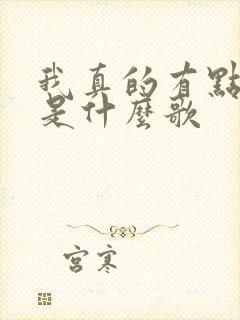 我真的有點
是什麼歌
宮寒